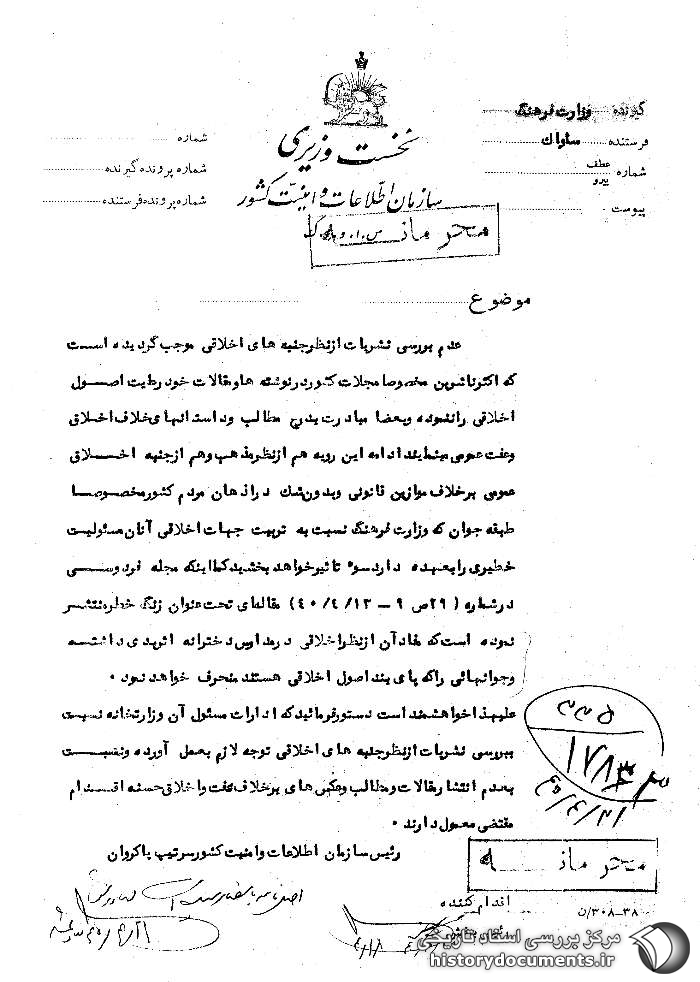 نخست وزیری
سازمان اطلاعات و امنیت کشور
گیرنده وزارت فرهنگ
فرستنده ساواک
شماره عطف پیرو
پیوست
شماره
شماره پرونده گیرنده
شماره پرونده فرستنده
محرمانه
موضوع
عدم بررسی نشریات ازنظرجنبه های اخلاقی موجب گردیده است
که اکثرناشرین مخصوصا مجلات کشوردرنوشته هاومقالات خود رعایت اصول
اخلاقی رانمنموده وبعضا مبادرت بدرج مطالب وداستانهای خلاف اخلاق
وعفت عمومی مینمایند ادامه این رویه هم ازنظرمذهب وهم ازجنبه اخلاق
عمومی برخلاف موازین قانونی وبدون شک دراذهان مردم کشورمخصوصا
طبقه جوان که وزارت فرهنگ نسبت به تربیت جهات اخلاقی آنان مسئولیت
خطیری رابعهده دارد سوء تاثیرخواهد بخشید کمااینکه مجله فردوسی
درشماره (۲۹ص ۹ – ۱۳/۴/۴۰) مقاله‌ای تحت عنوان زنگ خطرمنتشر
نموده است که مفادآن ازنظراخلاقی درمدارس دخترانه اثربدی داشته
وجوانهائی راکه پای بند اصول اخلاقی هستند منحرف خواهد نمود .
علیهذا خواهشمند است دستورفرمائید که ادارات مسئول آن وزارتخانه نسبت
ببررسی نشریات ازنظرجنبه های اخلاقی توجه لازم بعمل آورده ونسبت
بعدم انتشارمقالات ومطالب وعکس های برخلاف عفت واخلاق حسنه اقدام
مقتضی معمول دارند .
رئیس سازمان اطلاعات وامنیت کشورسرتیپ پاکروان
۱۷۸۳
۴۰/۴/۲۱
محرمانه
اقدام کننده
۳۰۸-۳۸/ن
مرکز بررسی اسناد تاریخی
historydocuments.ir